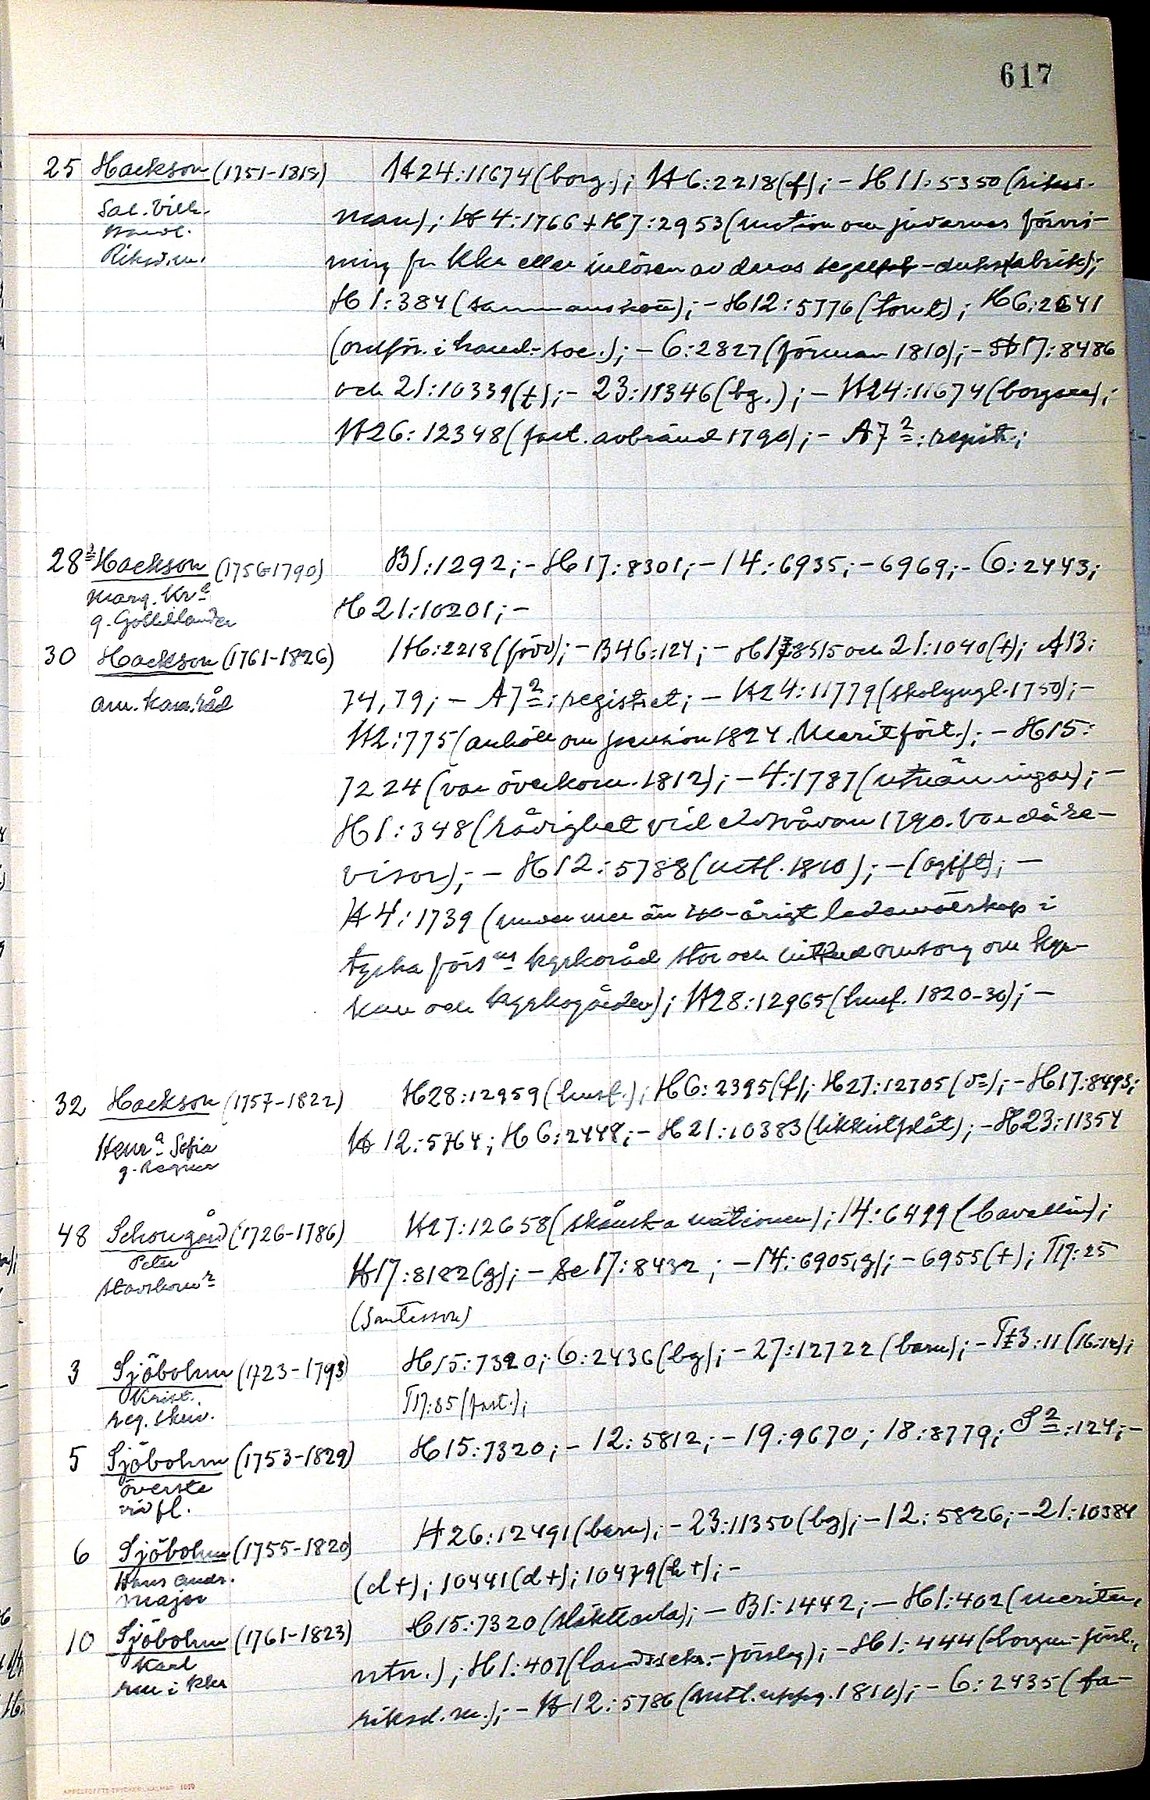 617
25 Hackson (1751-1815) H24:11674 (borg.); H6:2218 (f); - H11:5350 (riks-
Sal. Vilh.
man); H4:1766 + H7:2953 (motion om judarnas förvis-
Handl.
Riksd.m.
ning fr Kka eller inlösen av deras segel - duksfabrik);
H1:384 (sammanskott); - H12:5776 (tomt); H6:2641
(ordför. i hand.-soc.); - 6:2827 (förman 1810); - H17:8486
och 21:10339 (t); - 23:11346 (bg.); - H24:11674 (borgen);
H26:12348 (fast. avbränd 1790); - A7 2: registr.;
28 2 Hackson (1756-1790) B1:1292; - H17:8301; - 14:6935; - 6969; - 6:2443;
Marg. Kr a
H21:10201; -
g.
30 Hackson (1761-1826) H6:2218 (förd); - B46:124; - H17:8515 och 21:1040 (t); A13:
am. kam.råd
74, 79; - A7 2: registret; - H24:11779 (skolyngl. 1750); -
H2:775 (anhöll om pension 1824. Meritfört.); - H15:
7224 (var överkom. 1812); - 4:1787 (utnämningar); -
H1:348 (rådighet vid eldsvådan 1790. Var då re-
visor); - H12:5788 (mtl. 1810); - (ogift); -
H4:1739 (under mer än -årigt ledamotskap i
tyska förs ns kyrkoråd stor och omsorg om kyr-
kan och kyrkogården); H28:12965 (husf. 1820-30); -
32 Hackson (1757-1822) H28:12959 (husf.); H6:2395 (f); H27:12705 (d=); - H17:8493;
Henr a Sofia
H12:5764; H6:2448; - H21:10383 (likkistplåt); - H23:11354
g. Ragnar
48 Schougård (1726-1786) H27:12658 (skånska nationen); 14:6499 (Cavallin);
Peter
H17:8182 (g); - Se 17:8432; - 14:6905 (g); - 6955 (t); T17:25
(Santesson)
3 Sjöbohm (1723-1793) H15:7320; 6:2436 (bg); - 27:12722 (barn); - T13:11 (16:12);
Krist.
T17:85 (fast.);
reg. skriv.
5 Sjöbohm (1753-1829) H15:7320; - 12:5812; - 19:9670; 18:8779; S 2:124; -
överste
vid fl.
6 Sjöbohm (1755-1820) H26:12491 (barn); - 23:11350 (bg); - 12:5826; - 21:10384
Hans Andr.
(d+); 10441 (d+); 10479 (h+); -
major
10 Sjöbohm (1761-1823) H15:7320 (släkttavla); - B1:1442; - H1:402 (meriter,
Karl
utn.); H1:407 (landssekr.-förslag); - H1:444 (borgm.-försl.,
rm i Kka
riksd.m.); - H12:5786 (mtl.uppg. 1810); - 6:2435 (fa-
APPELTOFFTS TRYCKERI, KALMAR 1919